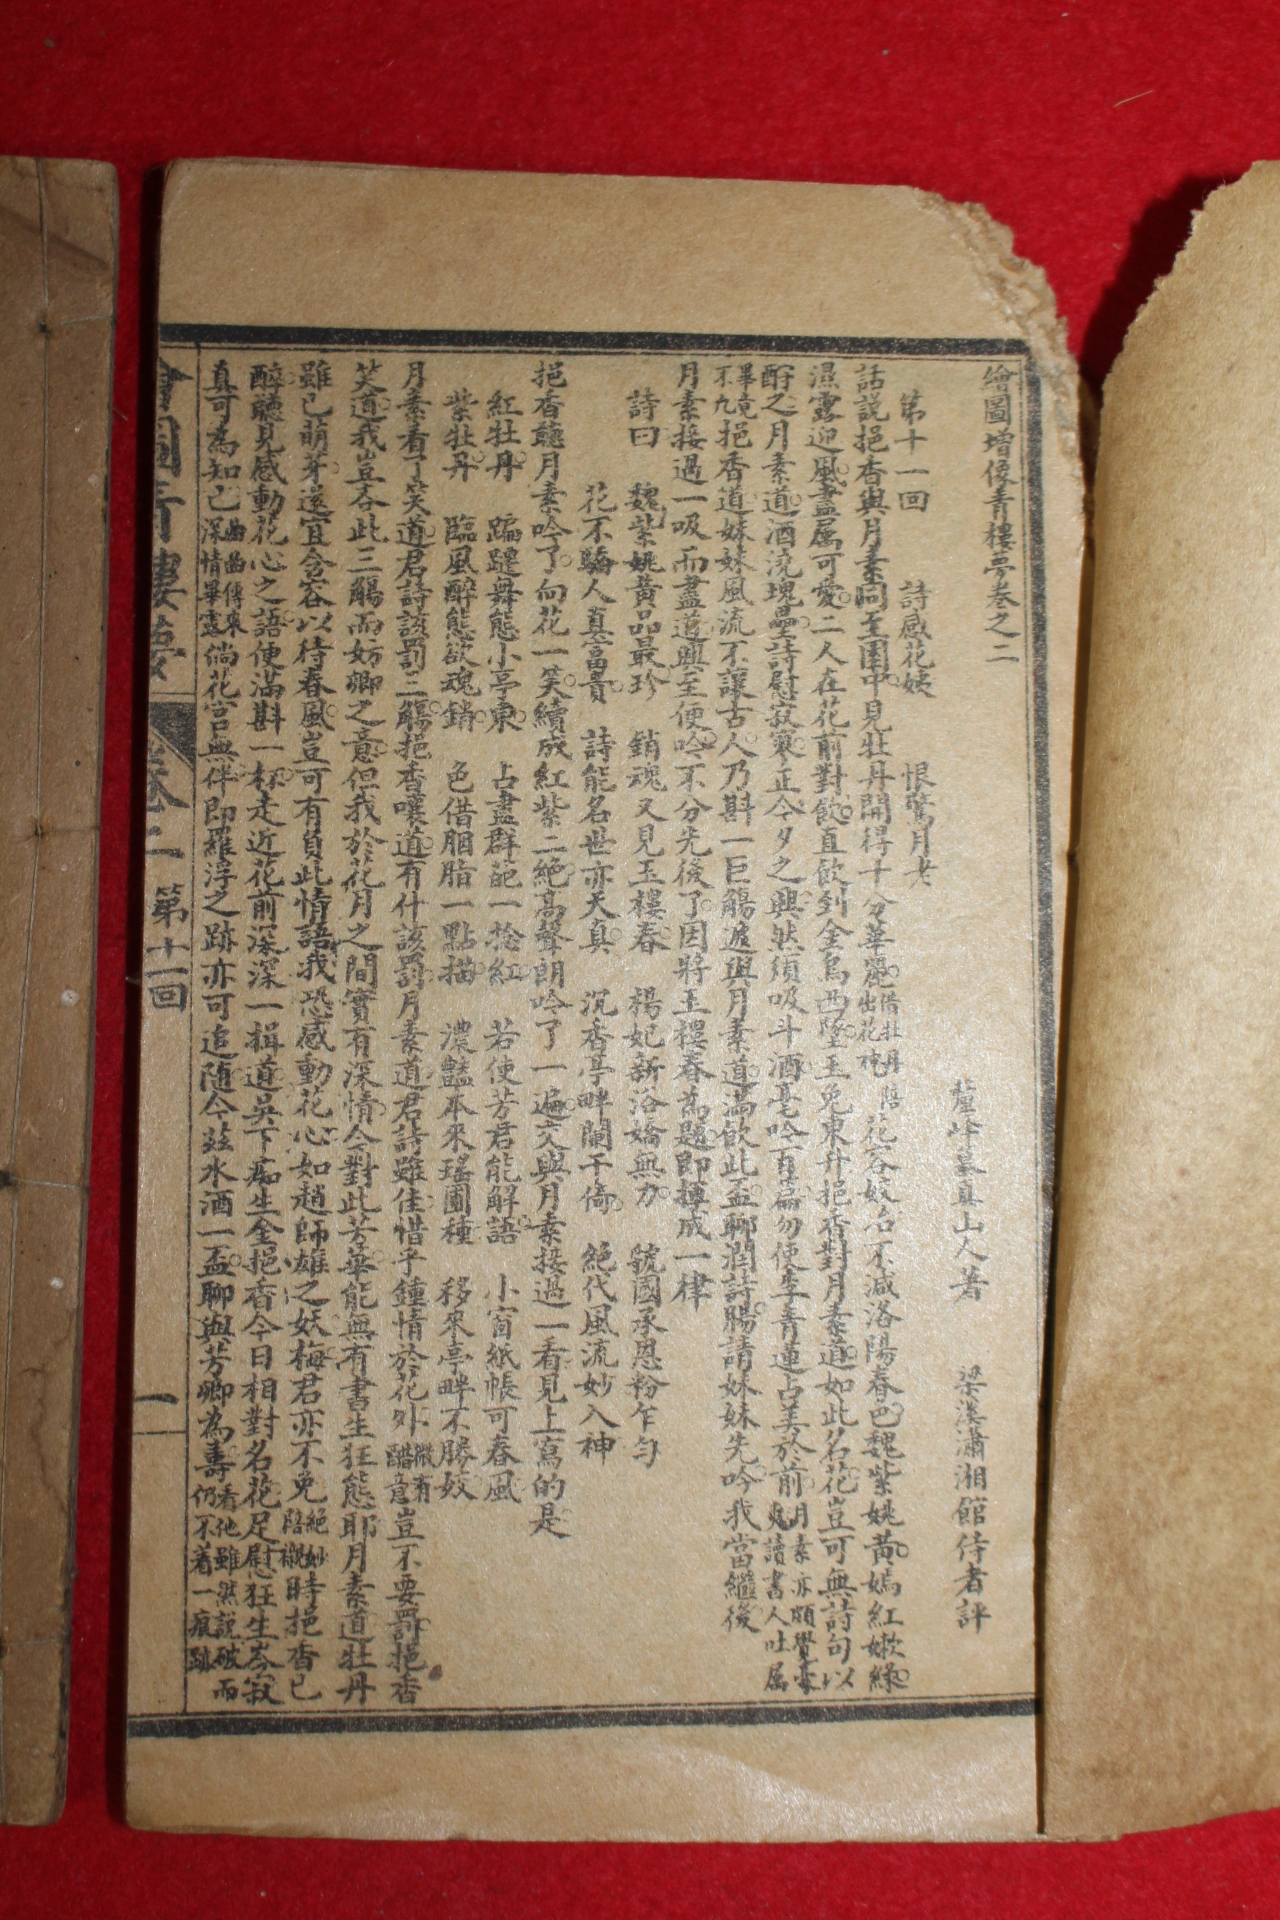 繪圖增像青樓夢卷之二
釐峰慕真山人著　梁溪瀟湘館侍者評
第十一回　詩感花姨　恨驚月老
話說挹香與月素同至園中見牡丹開得十分華麗借牡丹陪出花神花容姣冶不減洛陽春色魏紫姚黃嫣紅嫩綠
濕露迎風盡屬可愛二人在花前對飲直飲到金烏西墜玉兔東升挹香對月素道如此名花豈可無詩句以
酧之月素道酒澆塊壘詩慰寂寥正今夕之興然須吸斗酒亳吟百篇勿使李青蓮占美於前月素亦頗覺豪爽讀書人吐屬
畢竟不凡挹香道妹妹風流不讓古人乃斟一巨觴遞與月素道滿飲此盃聊潤詩腸請妹妹先吟我當繼後
月素接過一吸而盡道興至便吟不分先後了因將玉樓春為題即揮成一律
詩曰　魏紫姚黃品最珍　銷魂又見玉樓春　楊妃新浴嬌無力　虢國承恩粉乍勻
花不驕人真富貴　詩能名世亦天真　沉香亭畔闌干倚　絕代風流妙入神
挹香聽月素吟了向花一笑續成紅紫二絕高聲朗吟了一遍交與月素接過一看見上寫的是
紅牡丹　蹁躚舞態小亭東　占盡群葩一捻紅　若使芳君能解語　小窗紙帳可春風
紫牡丹　臨風醉態欲魂銷　色借胭脂一點描　濃豔本來瑤圃種　移來亭畔不勝姣
月素看了笑道君詩該罰三觴挹香嚷道有什該罰月素道君詩雖佳惜乎鍾情於花外微有醋意豈不要罰挹香
笑道我豈吝此三觴而妨卿之意但我於花月之間實有深情今對此芳華能無有書生狂態耶月素道牡丹
雖已萌芽遂宜含容以待春風豈可有負此情語我恐感動花心如趙師雄之妖梅君亦不免絕妙陪襯時挹香已
醉聽見感動花心之語便滿斟一杯走近花前深深一揖道吳下痴生金挹香今日相對名花足慰狂生岑寂
真可為知己曲曲傳來深情畢露倘花宮無伴即羅浮之跡亦可追隨今茲水酒一盃聊與芳卿為壽看他雖然說破而仍不着一痕跡
繪圖青樓夢　卷二　第十一回　一